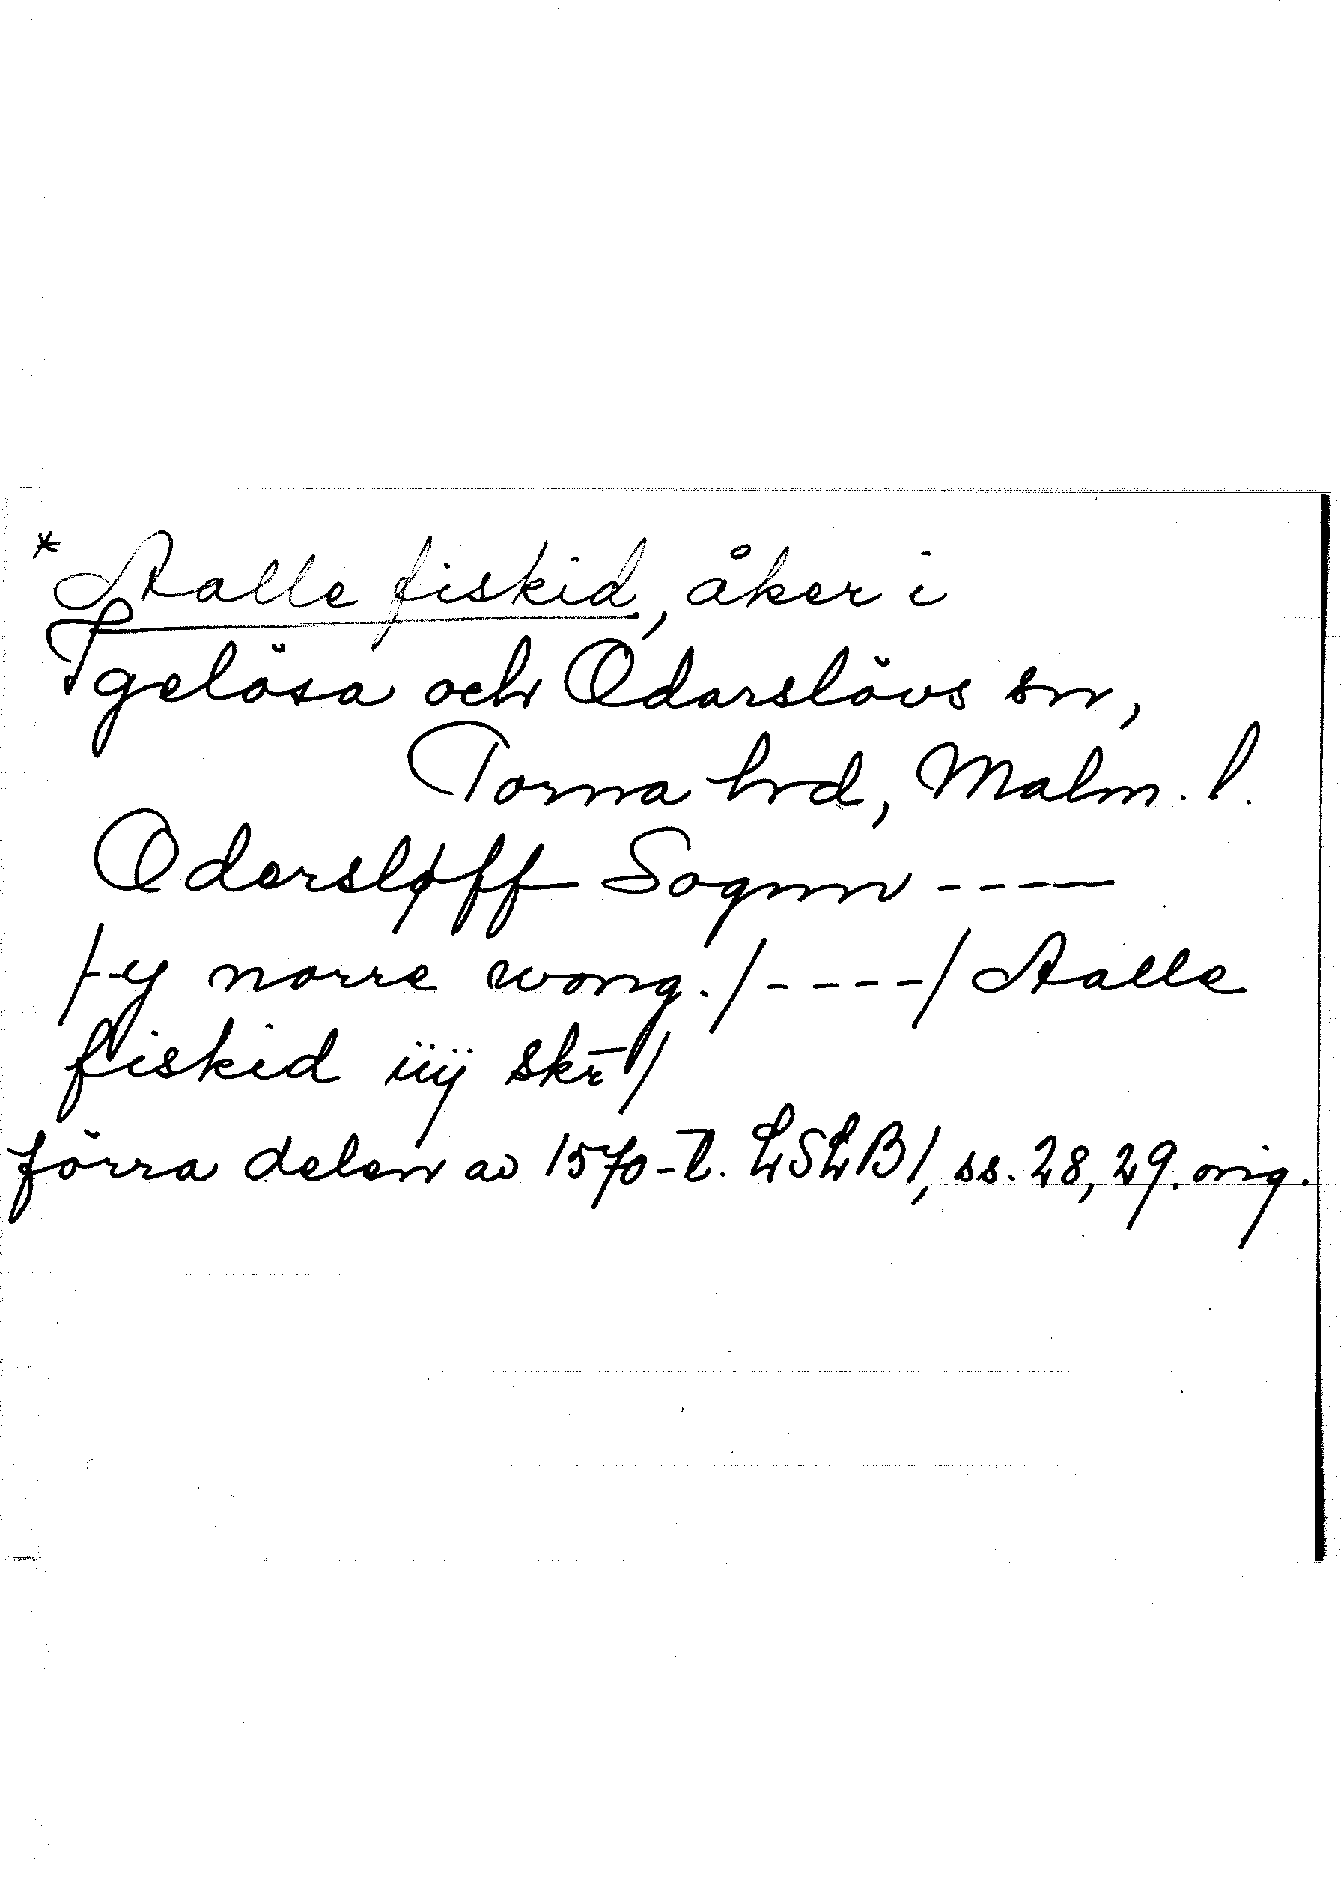 * Aalle fiskid, åker i
Igelösa och Odarslövs snr,
Torna hrd, Malm. l.
Odersløff Sognn ----
/-y norre wong./----/Aalle
fiskid iiij skr̄/
förra delen av 1570-t. LSLB1, ss. 28, 29. orig.